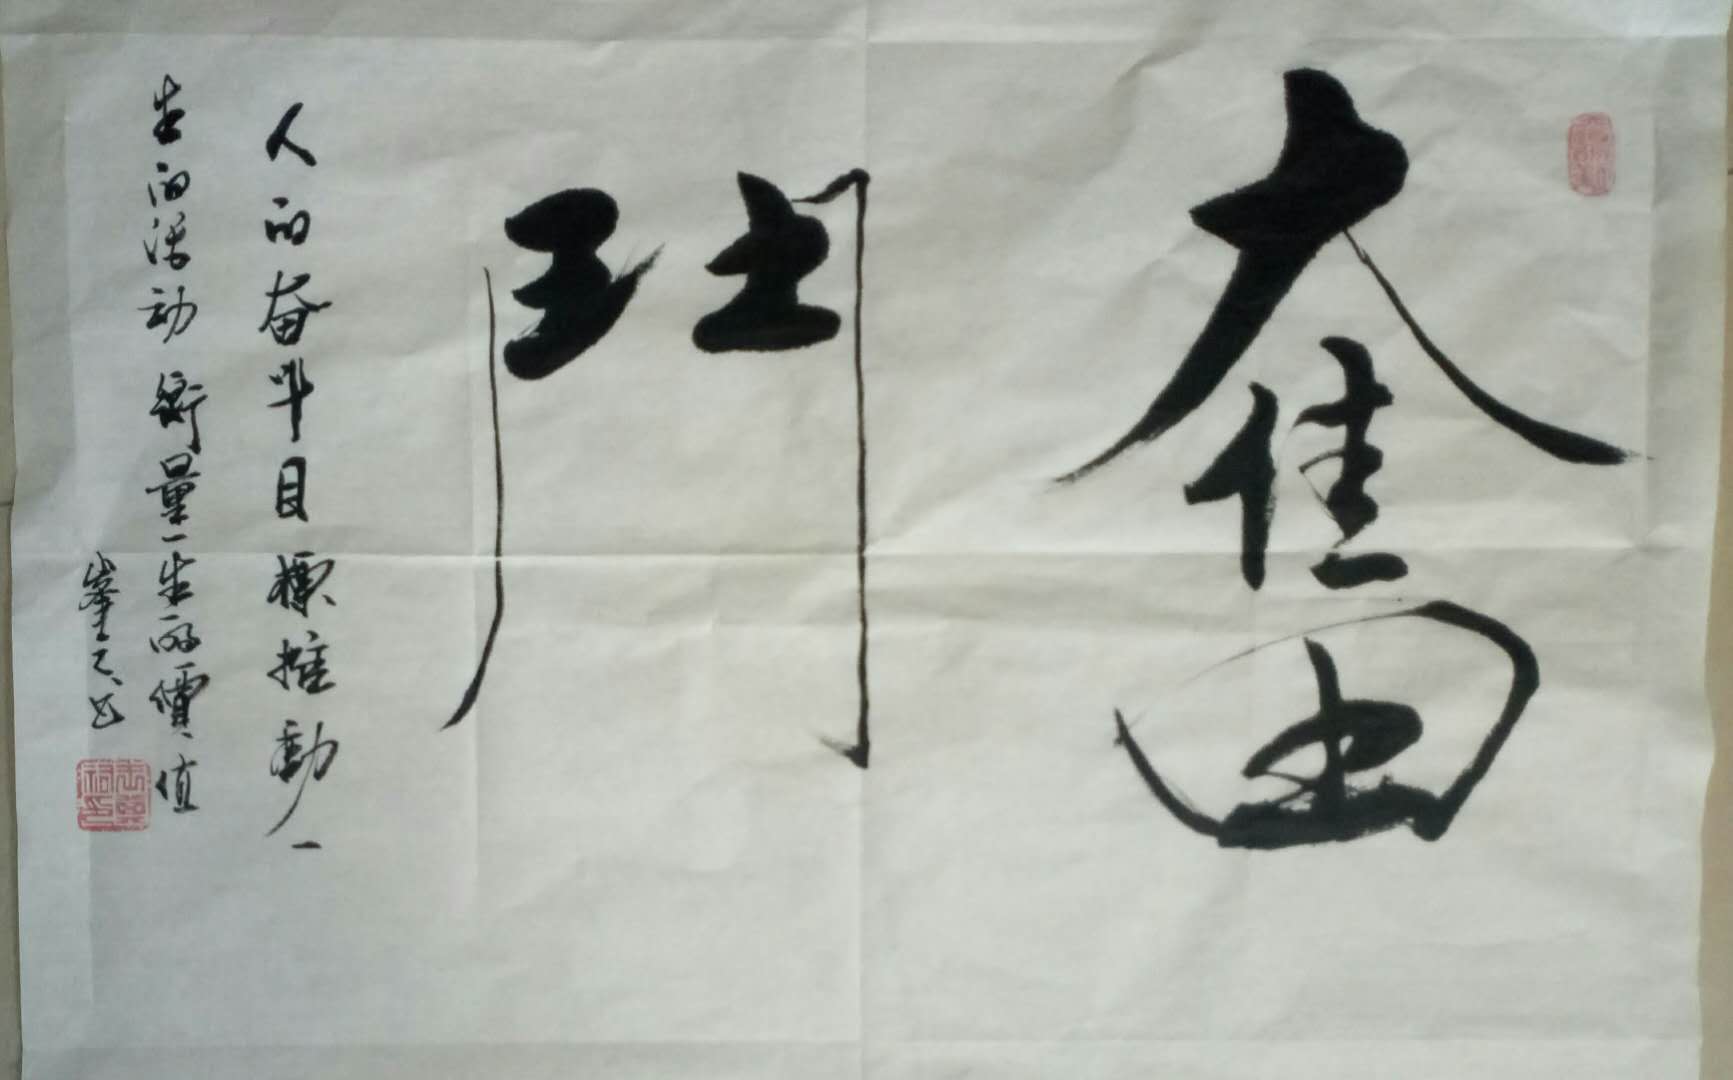 奮鬥
人的奋斗目標推動一
生的活动衡量一生的價值
峯书